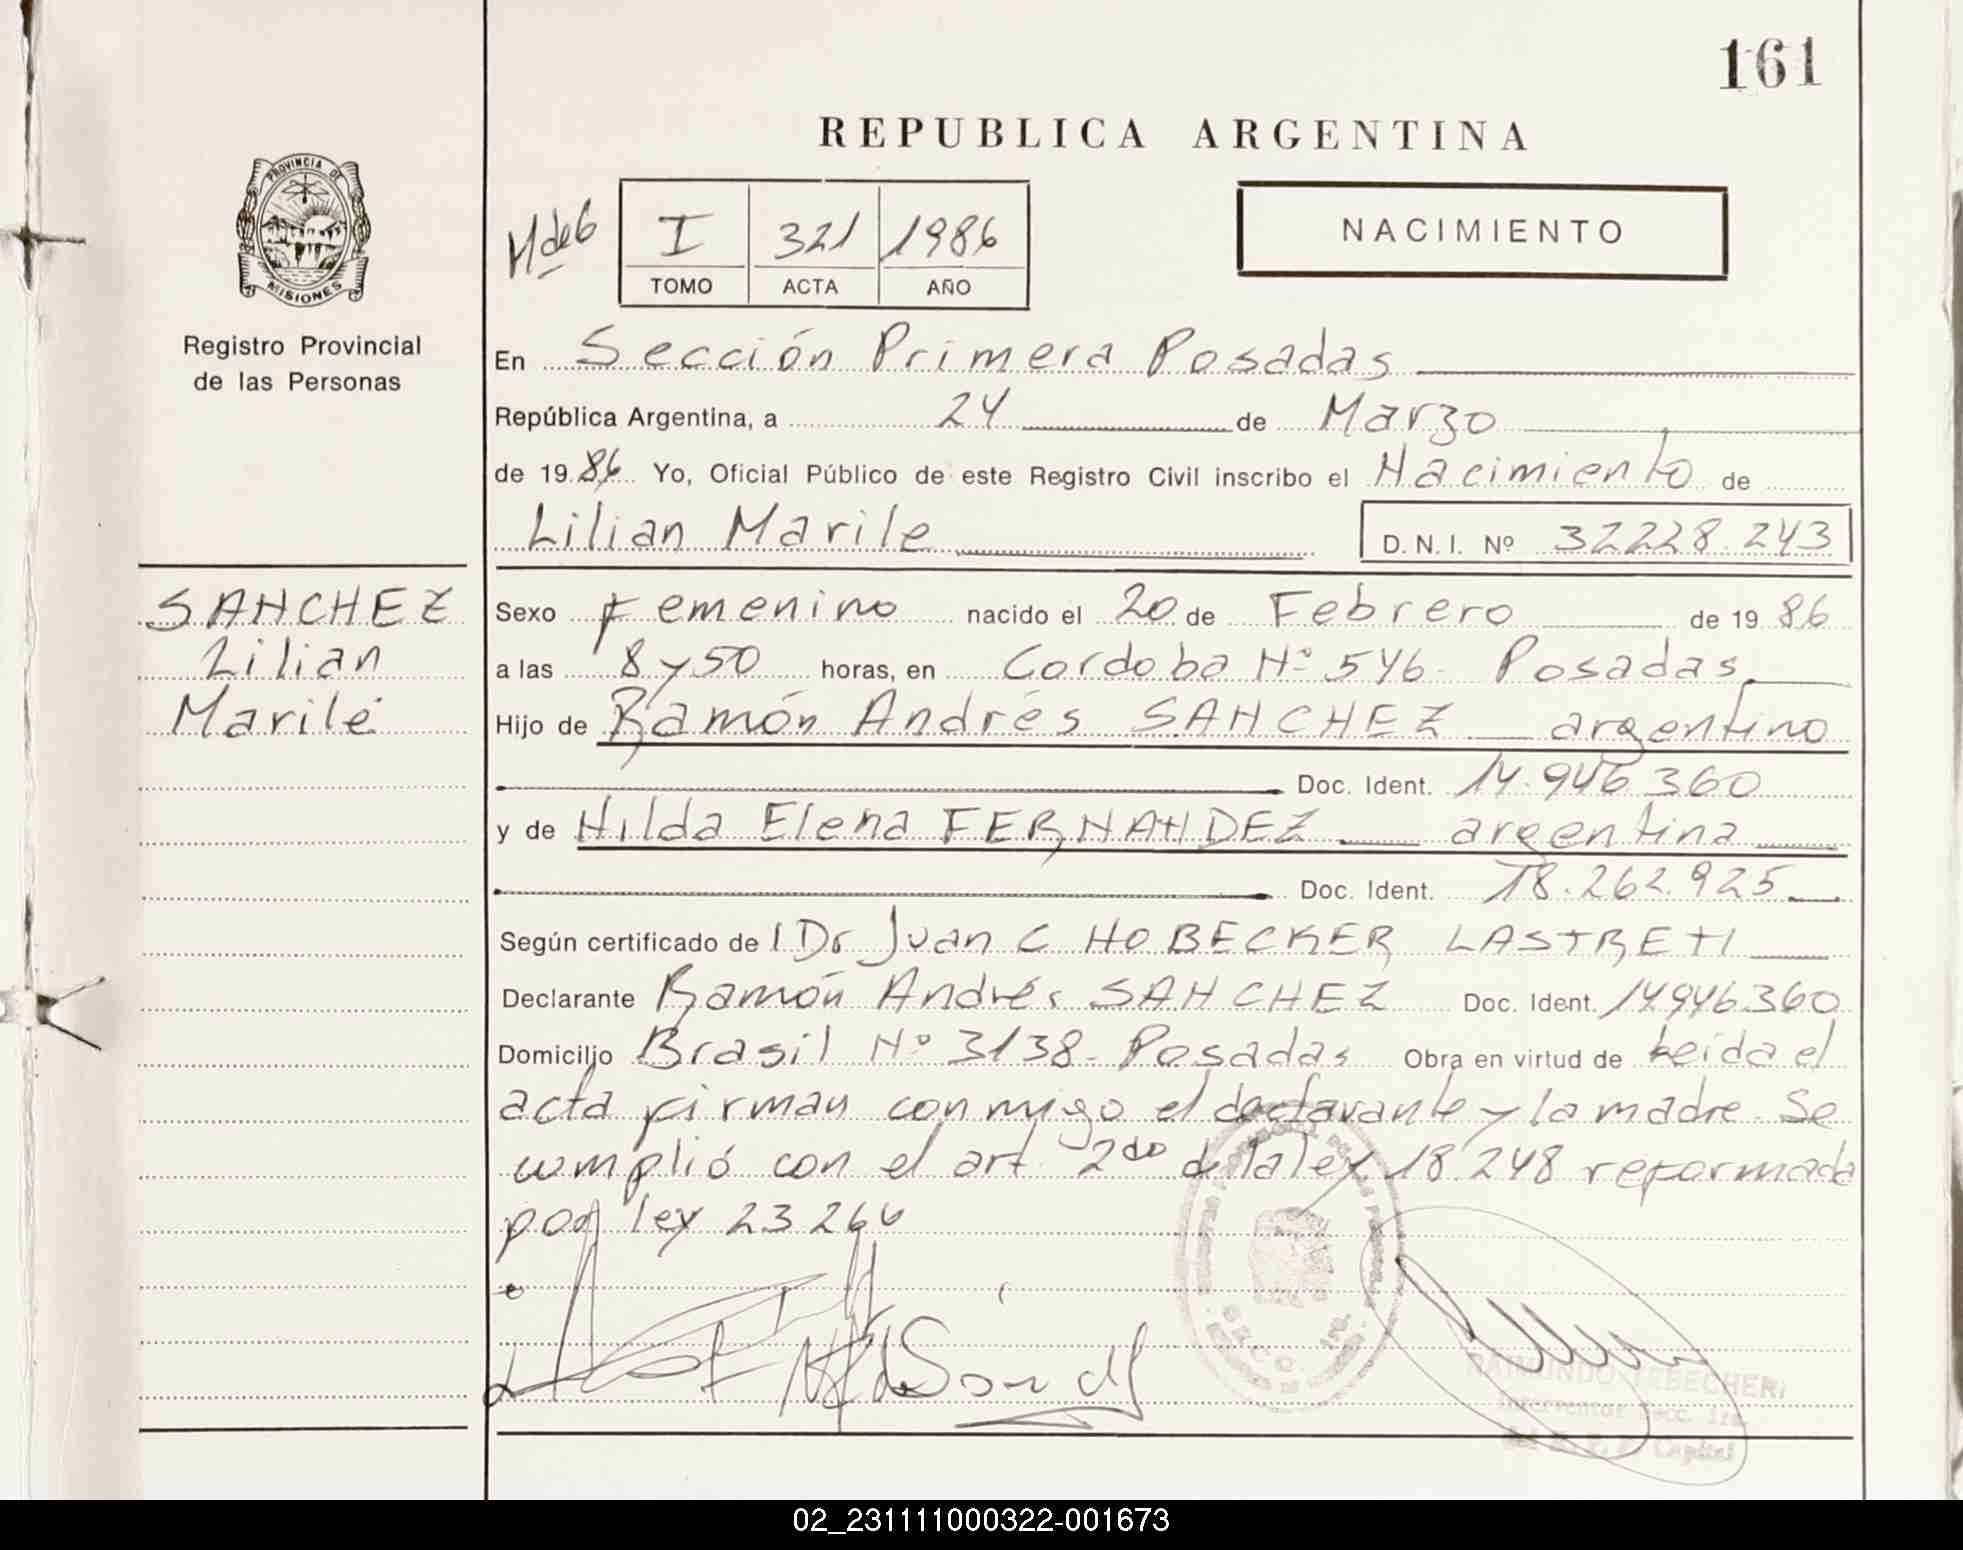 161
REPUBLICA ARGENTINA
PROVINCIA DE
MISIONES
Registro Provincial
de las Personas
I 321 1986
TOMO ACTA AÑO
NACIMIENTO
En Sección Primera Posadas
República Argentina, a 24 de Marzo
de 1986 Yo, Oficial Público de este Registro Civil inscribo el Nacimiento de
Lilian Marile D.N.I. Nº 32228.243
SANCHEZ
Lilian
Marilé
Sexo Femenino nacido el 20 de Febrero de 1986
a las 8 y 50 horas, en Cordoba Nº 546- Posadas
Hijo de Ramón Andrés SANCHEZ argentino
Doc. Ident. 14.946.360
y de Hilda Elena FERNANDEZ argentina
Doc. Ident. 18.262.925
Según certificado de Dr Juan C HOBECKER LASTRETI
Declarante Ramón Andrés SANCHEZ Doc. Ident. 14946360
Domicilio Brasil Nº 3138- Posadas Obra en virtud de Leída el
acta firman conmigo el declarante y la madre. Se
cumplió con el art. 2do de la ley 18.248 reformada
por ley 23264
RAIMUNDO
Interventor Secc. 1ra
Capital
02_231111000322-001673